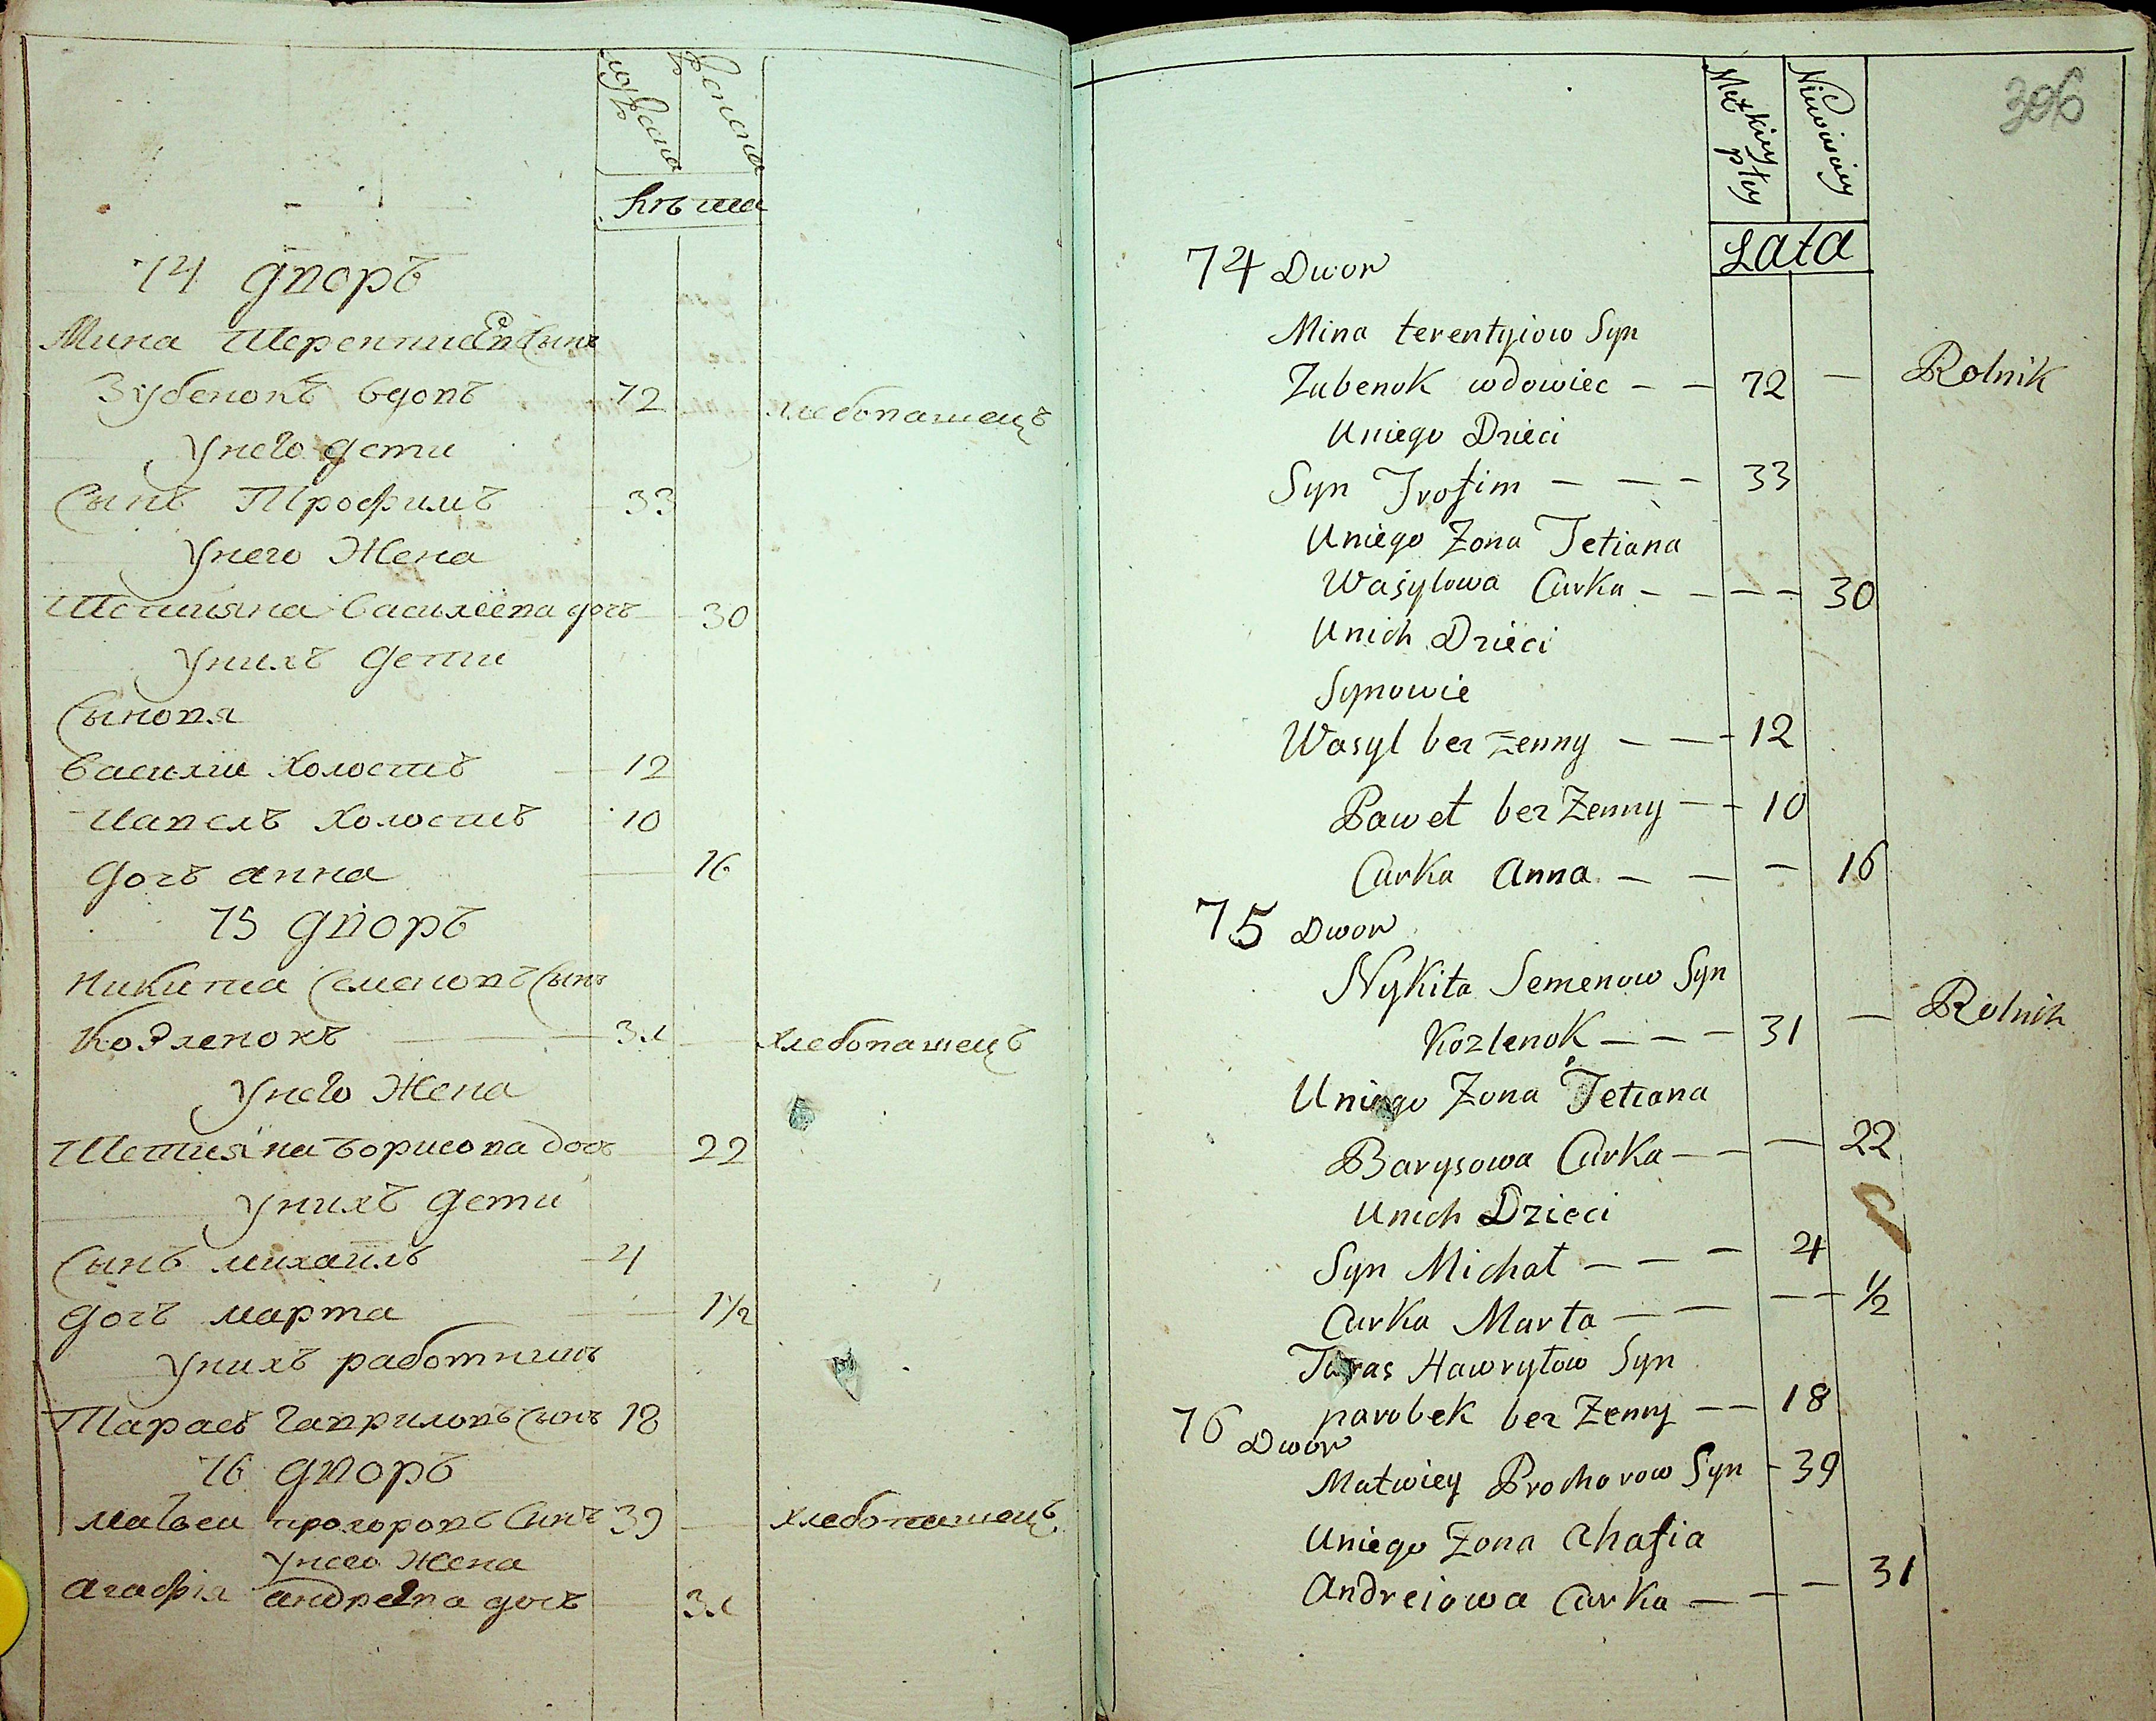 мужска
женска
лѣта
74 дворъ
Мина Терентиевъ Сынъ
Зубенокъ вдовъ 72 хлебопашецъ
У него дети
Сынъ Трофимъ 33
У него Жена
Тетияна Василѐева дочъ 30
У нихъ дети
Сыновя
Василии холостъ 12
Павелъ холостъ 10
дочъ анна 16
75 дворъ
Никита Семеновъ Сынъ
Козленокъ 31 хлебопашецъ
У него Жена
Тетияна Борисова дочъ 22
У нихъ дети
Сынъ михаилъ 4
дочъ марта 1½
У нихъ работникъ
Тарасъ Гавриловъ Сынъ 18
76 дворъ
Матвеи прохоровъ Сынъ 39 хлебопашецъ
У него Жена
агафiя андреева дочъ 31
306
Męzkiey płcy
Niewieściey
Lata
74 Dwor
Mina terentyiow Syn
Zubenok wdowiec - - 72 - Rolnik
Uniego Dzieci
Syn Trofim - - - 33
Uniego Zona Tetiana
Wasylowa Curka - - - - 30
Unich Dzieci
Synowie
Wasyl bez zenny - - - 12
Paweł bez Zenny - - 10
Curka Anna - - - 16
75 Dwor
Nykita Semenow Syn
Kozlenok - - - 31 - Rolnik
Uniego Zona Tetiana
Barysowa Curka - - - 22
Unich Dzieci
Syn Michał - - - 4
Curka Marta - - - - ½
Taras Hawryłow Syn
parobek bez Zenny - - 18
76 Dwor
Matwiey Prochorow Syn - 39
Uniego Zona Ahafia
Andreiowa Curka - - - 31